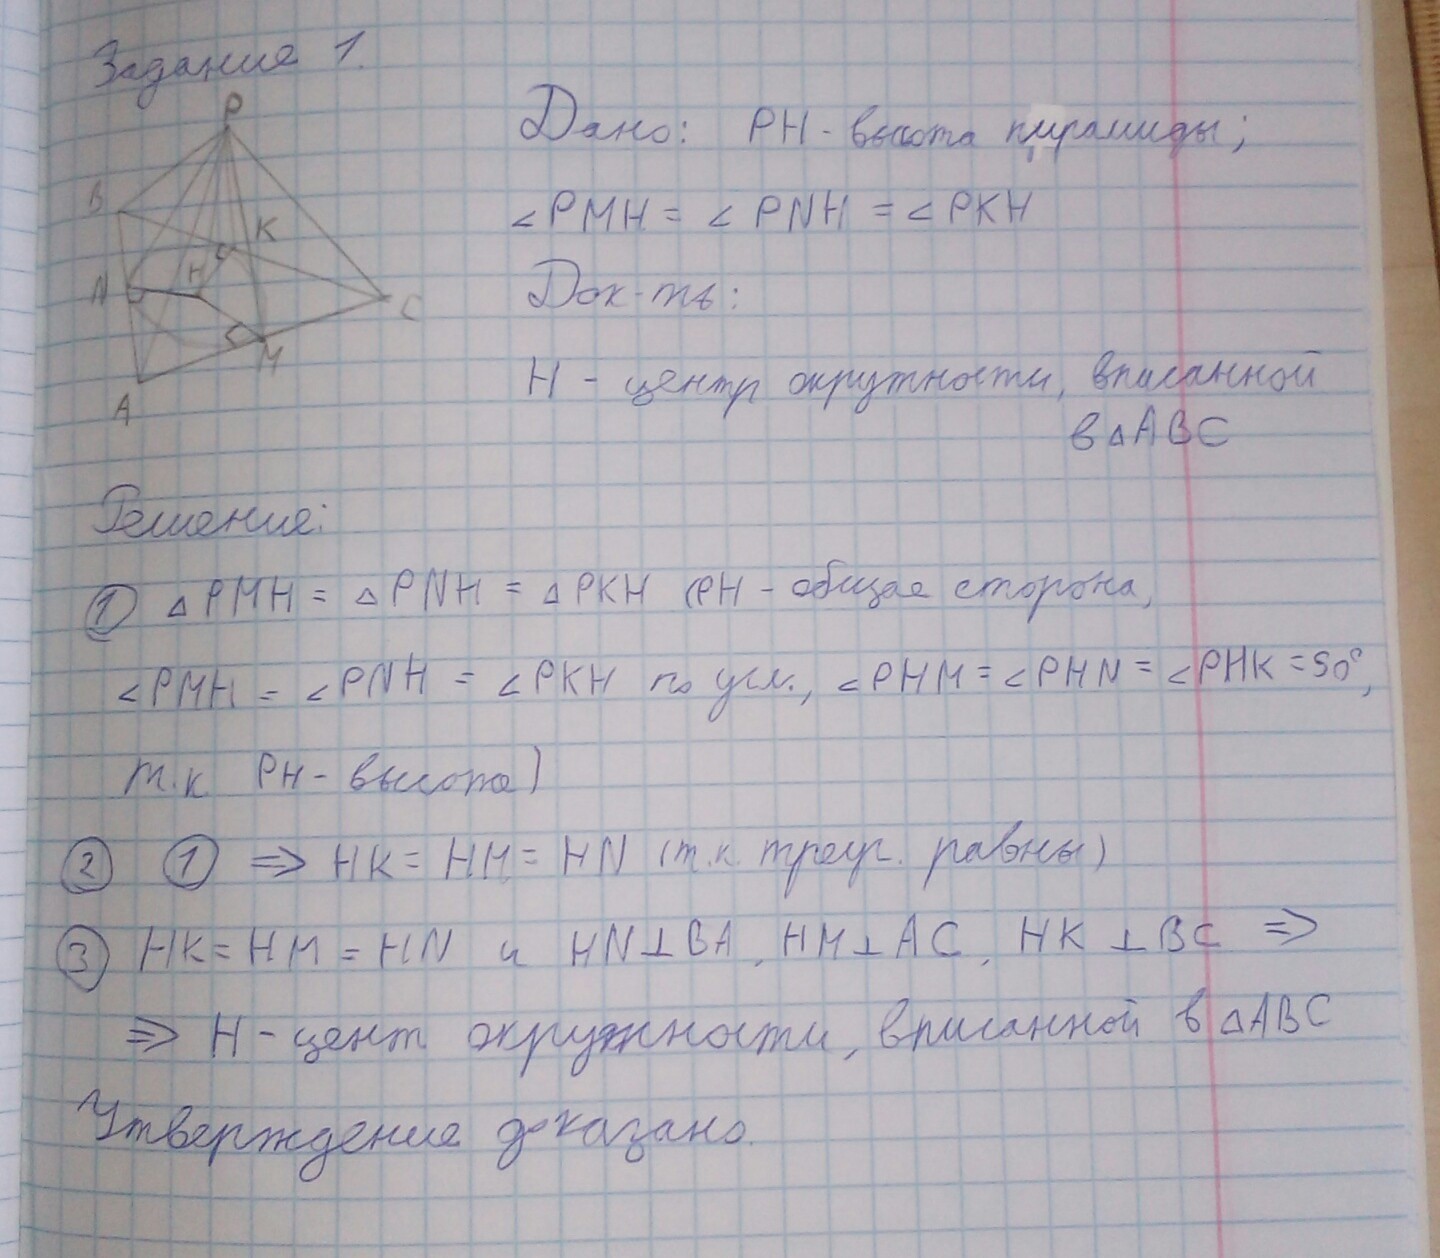 Задание 1.
P
B
K
N
H
C
M
A
Дано: PH - высота пирамиды;
∠PMH = ∠PNH = ∠PKH
Док-ть:
H - центр окружности, вписанной
в △ABC
Решение:
① △PMH = △PNH = △PKH (PH - общая сторона,
∠PMH = ∠PNH = ∠PKH по усл., ∠PHM = ∠PHN = ∠PHK = 90°,
т.к PH - высота)
② ① ⇒ HK = HM = HN (т.к. треуг. равны)
③ HK = HM = HN и HN⊥BA, HM⊥AC, HK ⊥ BC ⇒
⇒ H - цент окружности, вписанной в △ABC
Утверждение доказано.